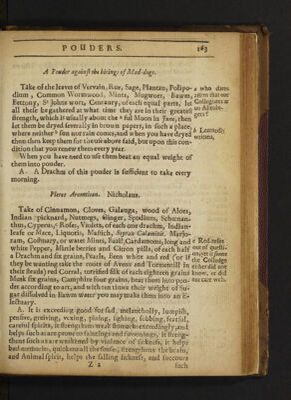 POUDERS. 163
A Pouder against the bitings of Mad-dogs.
Take of the leaves of Vervain, Rue, Sage, Plantan, Polipo-
dium, Common Wormwood, Mints, Mugwort, Bawm,
Bettony, St Johns wort, Centaury, of each equal parts, let
all these be gathered at what time they are in their greatest
strength, which is usually about the full Moon in June, then
let them be dryed severally in brown papers, in such a place,
where neither sun nor rain come, and when you have dryed
them then keep them for the use above said, but upon this con-
dition that you renew them every year.
When you have need to use them beat an equal weight of
them into pouder.
A. A Drachm of this pouder is sufficient to take every
morning.
who dares
affirm that our
Colledg
Pleres Arconticon. Nicholaus.
Take of Cinnamon, Cloves, Galanga, wood of Aloes,
Indian Spicknard, Nutmegs, Ginger, Spodium, Schænan-
thus, Cyperus, Roses, Violets, of each one drachm, Indian-
leafe or Mace, Liquoris, Mastich, Styrax Calamitis, Marjo-
ram, Costmary, or water Mints, Basil, Cardamoms, long and
white Pepper, Mirtle berries and Citron pills, of each half
a Drachm and six grains, Pearls, Been white and red (or if
they be wanting take the roots of Avens and Tormentill in
their steads) red Corral, torrified silk of each eighteen grains
Musk six grains, Camphire four grains, beat them into pou-
der according to art, and with ten times their weight of Su-
gar dissolved in Bawm water you may make them into an E-
lectuary.
A. It is exceeding good for sad, melancholly, lumpish,
pensive, grieving, vexing, pining, sighing, sobbing, fearful,
careful spirits, it strengthens weak stomachs exceedingly, and
helps such as are prone to faintings and swoonings, it streng-
thens such as are weakened by violence of sickness, it helps
bad memories, quickens all the senses, strengthens the brain,
and Animal spirit, helps the falling sickness, and succours
Z 2 such